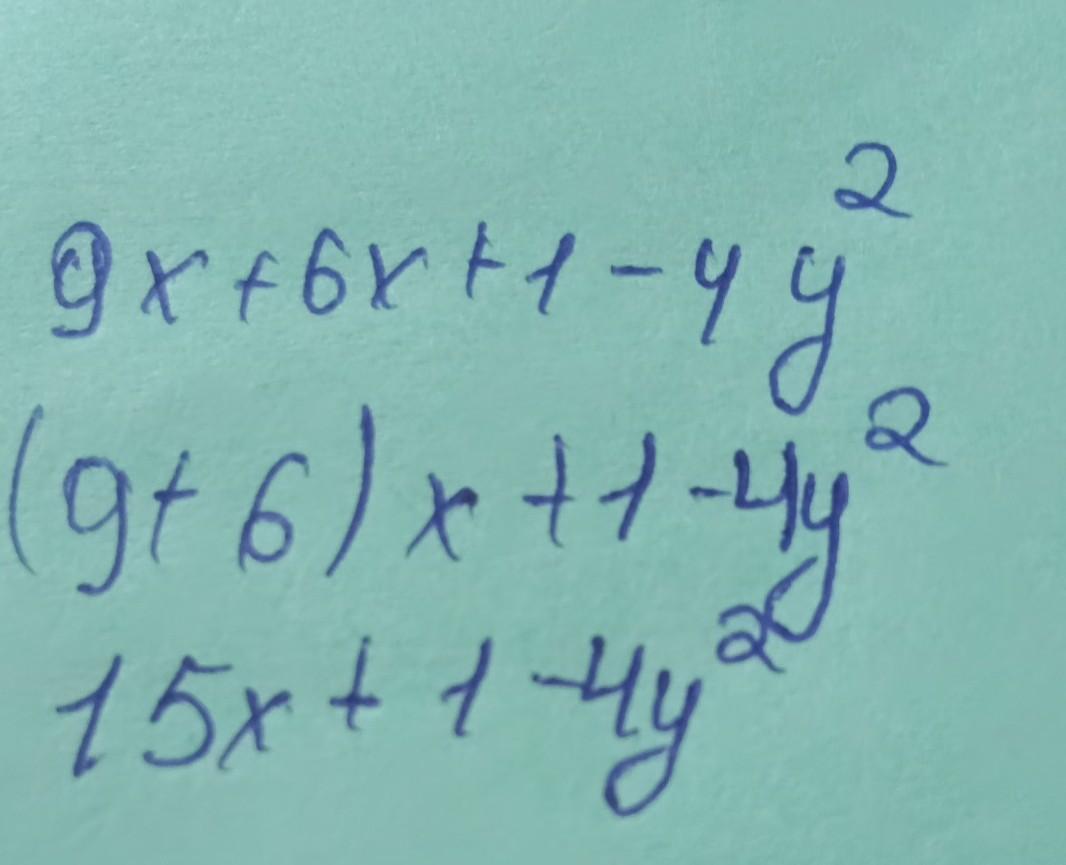 9x+6x+1-4y²
(9+6)x+1-4y²
15x+1-4y²